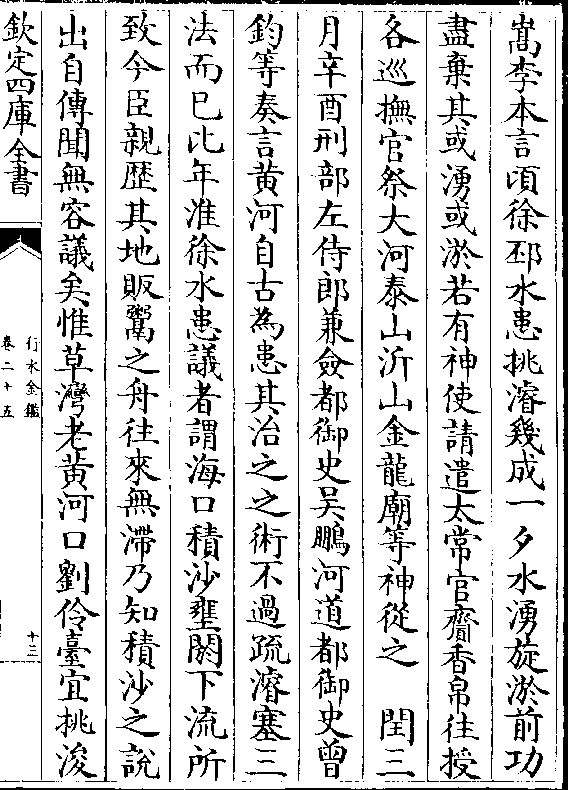 嵩李本言頃徐邳水患挑濬幾成一夕水湧旋淤前功
盡棄其或湧或淤若有神使請遣太常官齎香帛往授
各巡撫官祭大河泰山沂山金龍廟等神從之　閏三
月辛酉刑部左侍郎兼僉都御史吳鵬河道都御史曾
鈞等奏言黃河自古為患其治之之術不過疏濬塞三
法而已比年淮徐水患議者謂海口積沙壅閼下流所
致今臣親歷其地販鬻之舟往來無滯乃知積沙之說
出自傳聞無容議矣惟草灣老黃河口劉伶臺宜挑浚
欽定四庫全書
行水金鑑
卷二十五
十三